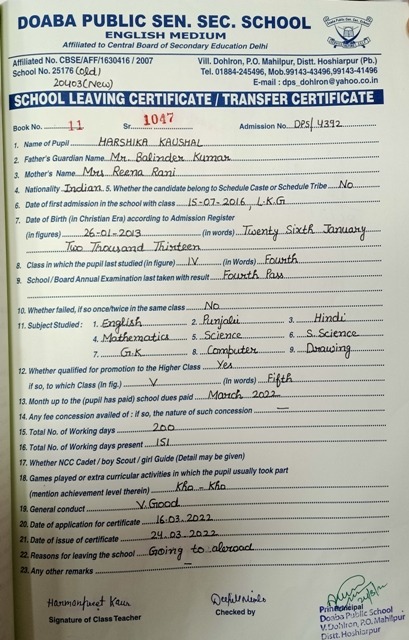 DOABA PUBLIC SEN. SEC. SCHOOL
ENGLISH MEDIUM
Affiliated to Central Board of Secondary Education Delhi
Affiliated No. CBSE/AFF/1630416 / 2007 Vill. Dohlron, P.O. Mahilpur, Distt. Hoshiarpur (Pb.)
School No. 25176 (Old) Tel. 01884-245496, Mob.99143-43496,99143-41496
20403 (New) E-mail : dps_dohlron@yahoo.co.in
SCHOOL LEAVING CERTIFICATE / TRANSFER CERTIFICATE
Book No. 11 Sr. 1047 Admission No. DPS/4392
1. Name of Pupil HARSHIKA KAUSHAL
2. Father's Guardian Name Mr. Balinder Kumar
3. Mother's Name Mrs Reena Rani
4. Nationality Indian 5. Whether the candidate belong to Schedule Caste or Schedule Tribe No
6. Date of first admission in the school with class 15-07-2016, L.K.G
7. Date of Birth (in Christian Era) according to Admission Register
(in figures) 26-01-2013 (in words) Twenty Sixth January
Two Thousand Thirteen
8. Class in which the pupil last studied (in figure) IV (in Words) Fourth
9. School / Board Annual Examination last taken with result Fourth Pass
10. Whether failed, if so once/twice in the same class No
11. Subject Studied : 1. English 2. Punjabi 3. Hindi
4. Mathematics 5. Science 6. S. Science
7. G.K 8. Computer 9. Drawing
12. Whether qualified for promotion to the Higher Class Yes
if so, to which Class (In fig.) V (In words) Fifth
13. Month up to the (pupil has paid) school dues paid March 2022
14. Any fee concession availed of : if so, the nature of such concession —
15. Total No. of Working days 200
16. Total No. of Working days present 151
17. Whether NCC Cadet / boy Scout / girl Guide (Detail may be given)
18. Games played or extra curricular activities in which the pupil usually took part
(mention achievement level therein) Kho - Kho
19. General conduct V. Good
20. Date of application for certificate 16.03.2022
21. Date of issue of certificate 24.03.2022
22. Reasons for leaving the school Going to abroad
23. Any other remarks —
Harmanpreet Kaur
Signature of Class Teacher Checked by Principal
Doaba Public School
V. Dohlron, P.O. Mahilpur
Distt. Hoshiarpur